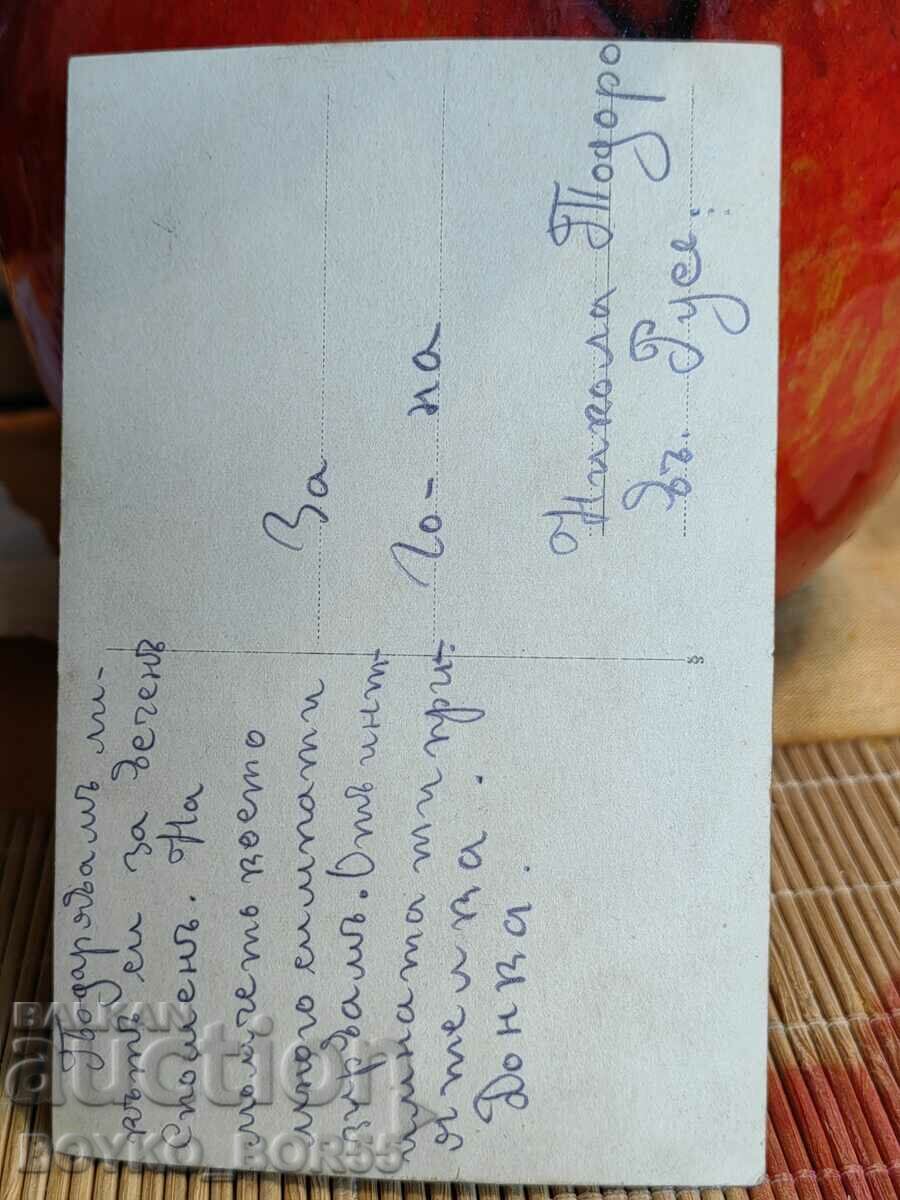 Подарявамъ ли-
кътъ си за вечень
Споменъ. На
момчето което
много симпати
зирвамъ. Отъ инт
имната ти при-
ятелка.
Донка.
За
Го-на
Никола Тодоро
въ. Русе.
8
BALKAN
auction
BOYKO_BOR55